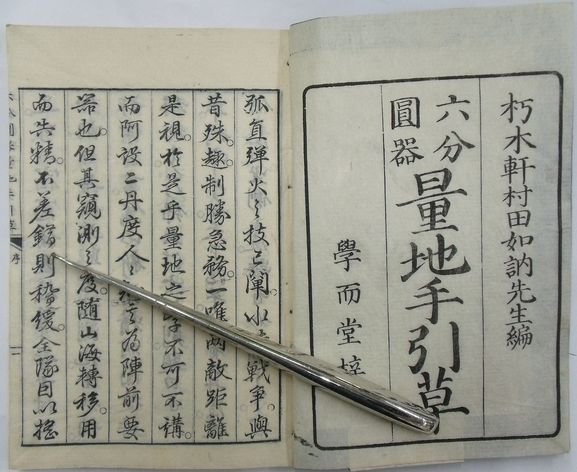 朽木軒村田如訥先生編
六分圓器
量地手引草
學而堂
弧直彈火之技已闡水戰爭與
昔殊趣。制勝急務。一唯兩敵距離
是視。於是乎量地之學不可不講。
而阿設二丹度人之為陣前要
器也。但其窺測之度。隨山海轉移。用
而失精。不差錯則稽緩。全隊目以搖
序